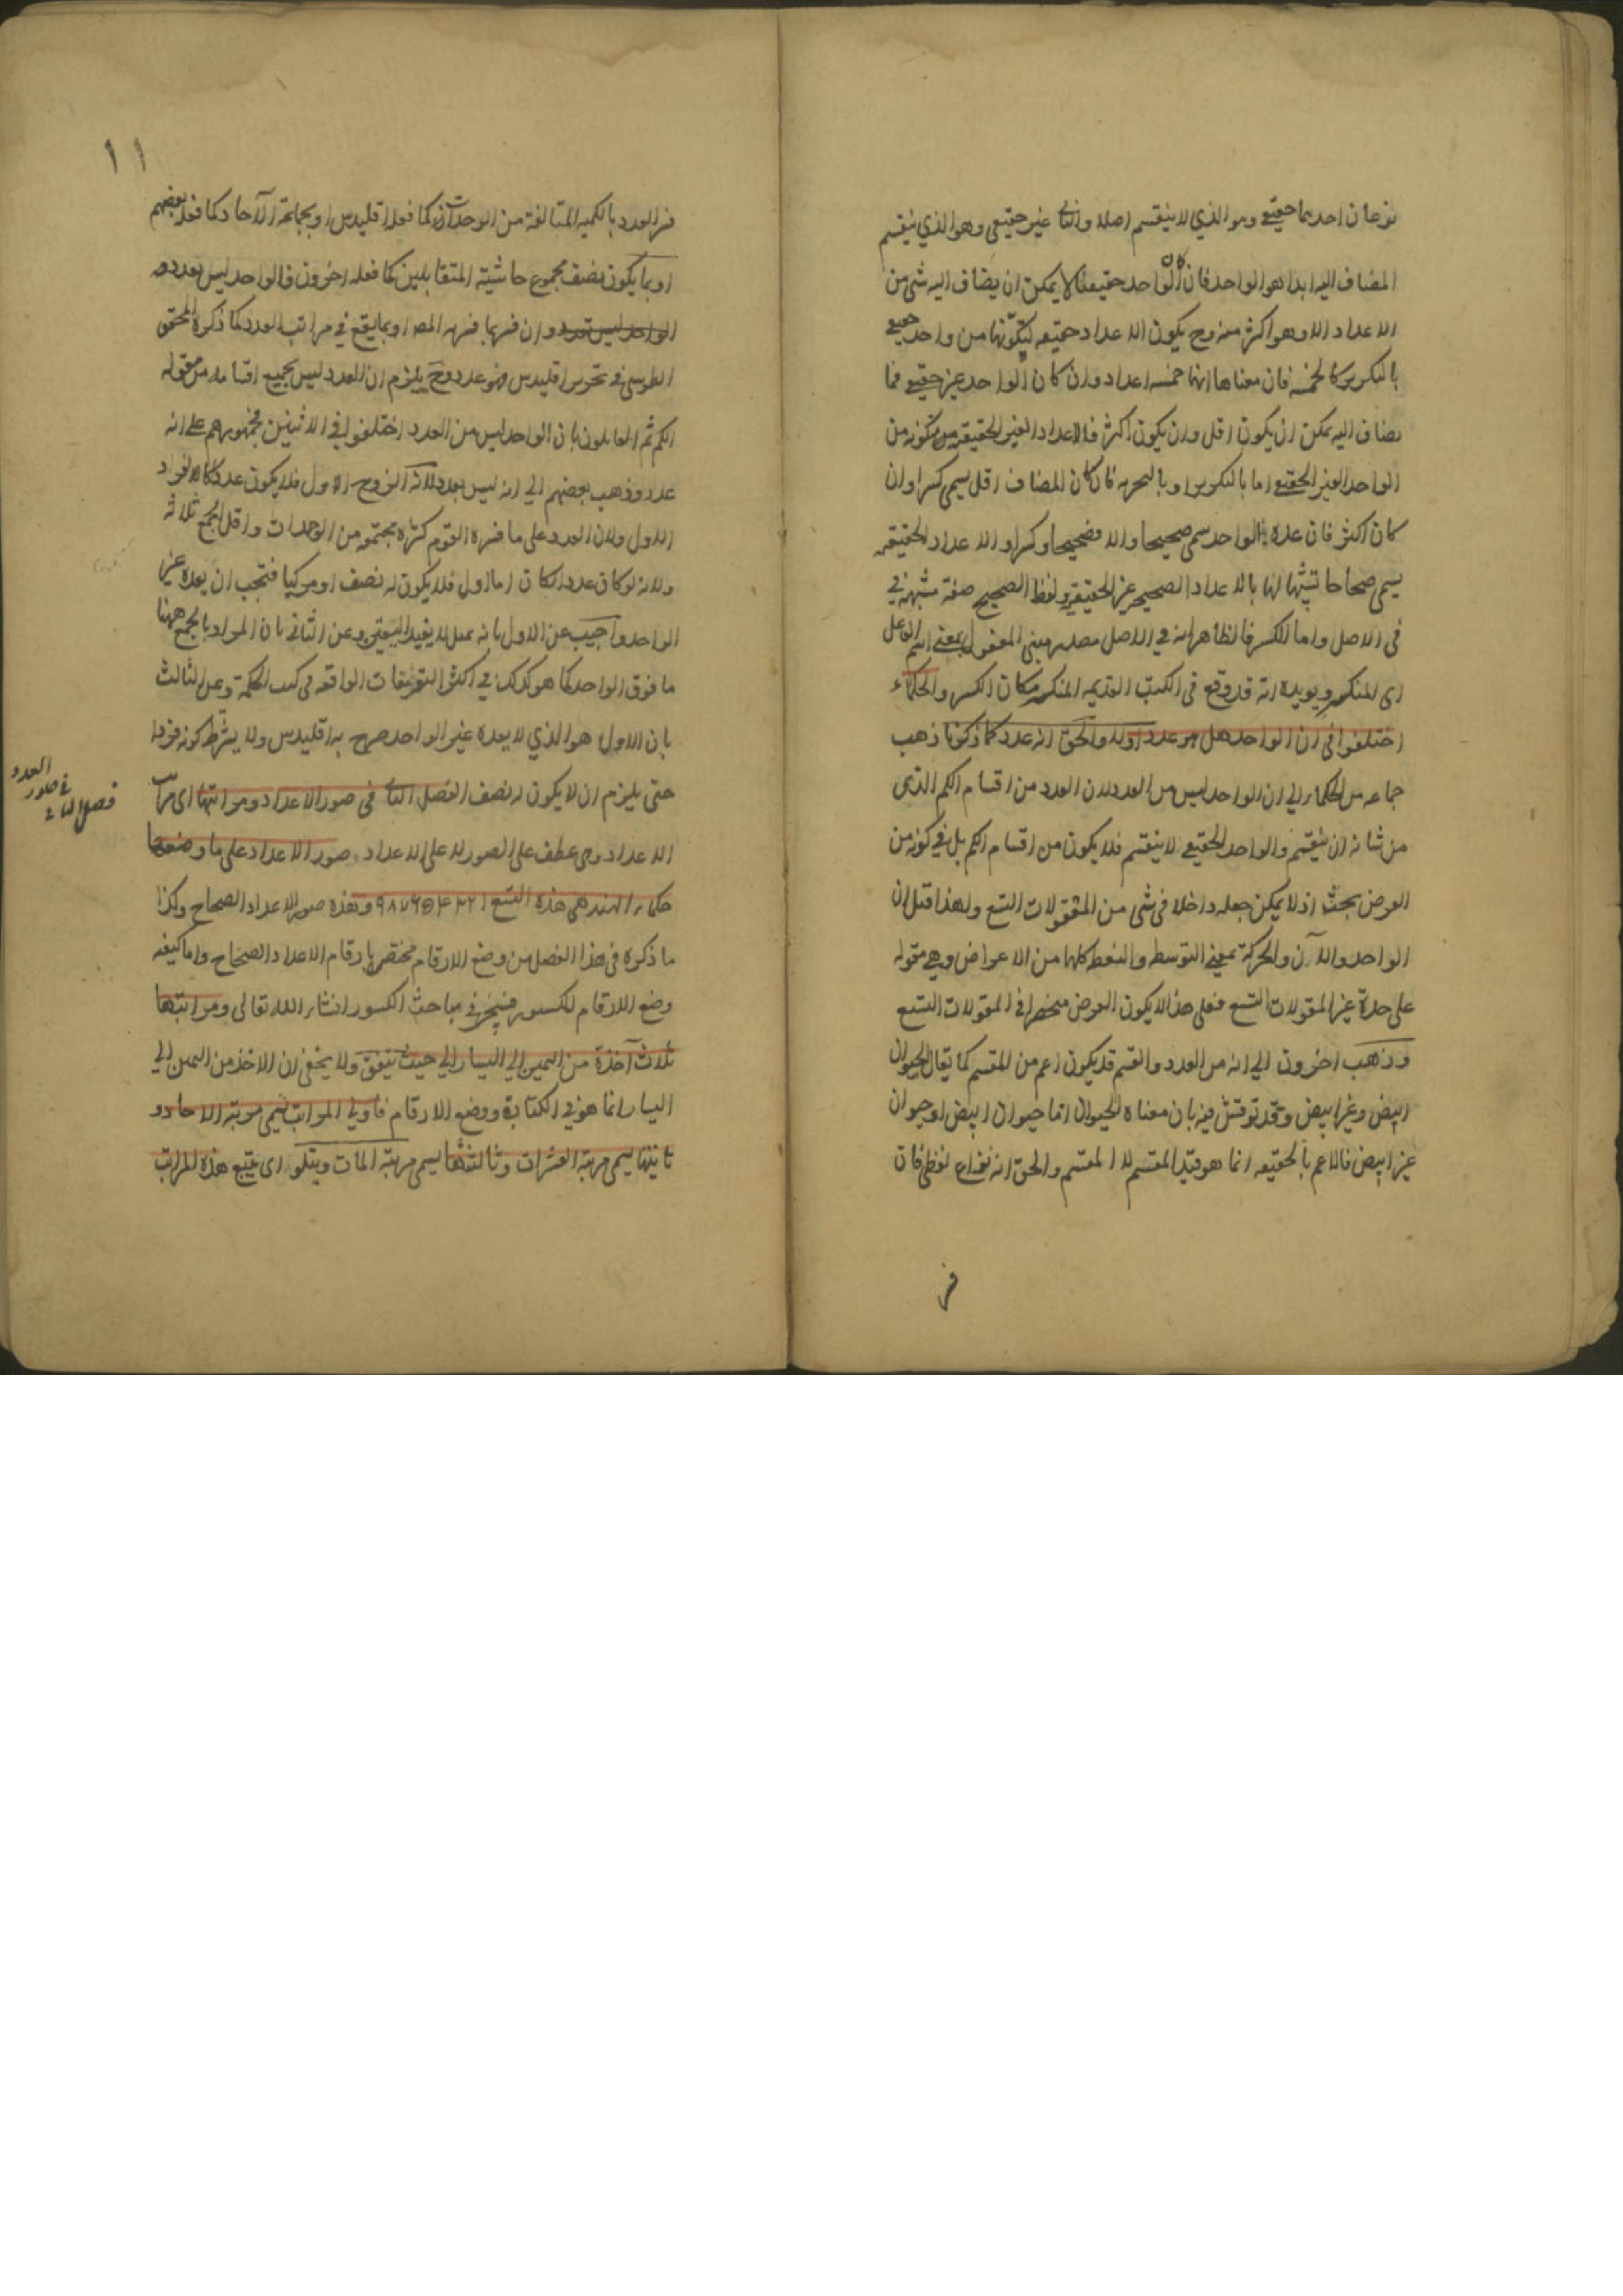 نوعان احدهما حقيقي وهو الذي لا ينقسم اصلا والثاني غير حقيقي وهو الذي ينقسم
المضاف اليه ابدا هو الواحد فان كان الواحد حقيقيا لا يمكن ان يضاف اليه شئ من
الاعداد الا وهو اكثر منه وح يكون الاعداد حقيقيه لتكونها من واحد حقيقي
بالتكرير كالخمسه فان معناها انها خمسه اعداد وان كان الواحد غير حقيقي فما
يضاف اليه يمكن ان يكون اقل وان يكون اكثر فالاعداد الغير الحقيقيه متكونه من
الواحد الغير الحقيقي اما بالتكرير او بالتجزيه فان كان المضاف اقل يسمى كسرا وان
كان اكثر فان عده الواحد سمى صحيحا والا فصحيحا وكسرا والاعداد الحقيقيه
يسمى صحاحا تشبيها لها بالاعداد الصحيحه غير الحقيقيه ولفظ الصحيح صفة مشبهة
في الاصل واما الكسر فالظاهر انه في الاصل مصدر مبني المفعول بمعنى اسم الفاعل
اى المنكسر ويويده انه قد وقع فى الكتب القديمه المنكسر مكان الكسر والحكماء
اختلفوا في ان الواحد هل هو عدد اولا والحق انه عدد كما ذكرنا ذهب
جماعه من الحكماء الى ان الواحد ليس من العدد لان العدد من اقسام الكم الذى
من شانه ان ينقسم والواحد الحقيقي لا ينقسم فلا يكون من اقسام الكم بل في كونه من
العرض بحث اذ لا يمكن جعله داخلا فى شى من المقولات التسع ولهذا قيل ان
الواحد والآن والحركة بمعنى التوسط والنقط كلها من الاعراض وهي مقوله
على حدة غير المقولات التسع فعلى هذا لا يكون العرض منحصرا في المقولات التسع
وذهب اخرون الى انه من العدد والقسم قد يكون اعم من المقسم كما يقال الحيوان
ابيض وغير ابيض وقد نوقش فيه بان معناه الحيوان اما حيوان ابيض او حيوان
غير ابيض فالاعم بالحقيقه انما هو قيد المقسم لا المقسم والحق انه نزاع لفظي فان
فسر
١١
فسر العدد بالكميه المتالفة من الوحدات كما فعله اقليدس او بجماعة الآحاد كما فعله بعضهم
او بما يكون نصف مجموع حاشيتيه المتقابلتين كما فعله اخرون فالواحد ليس بعدد
الواحد ليس بعدد وان فسر بما فسره المصـ او بما يقع في مراتب العدد كما ذكره المحقق
الطوسي في تحرير اقليدس فهو عدد وح يلزم ان العدد ليس بجميع اقسامه من مقوله
الكم ثم القايلون بان الواحد ليس من العدد اختلفوا في الاثنين فجمهورهم على انه
عدد وذهب بعضهم الى انه ليس بعدد لانه الزوج الاول فلا يكون عددا كالفرد
الاول ولان العدد على ما فسره القوم كثرة مجتمعه من الوحدات واقل الجمع ثلاثه
ولانه لو كان عددا لكان اما اول فلا يكون له نصف او مركبا فتجب ان يعده غير
الواحد واجيب عن الاول بانه عمل لا يفيد اليقين وعن الثانى بان المراد بالجمع ههنا
ما فوق الواحد كما هو كذلك في اكثر التعريفات الواقعه فى كتب الحكمة وعن الثالث
بان الاول هو الذي لا يعده غير الواحد صرح به اقليدس ولا يشترط كونه فردا
حتى يلزم ان لا يكون له نصف الفصل الثانى فى صور الاعداد ومراتبها اى مراتب
الاعداد وهى عطف على الصور لا على الاعداد صور الاعداد على ما وضعها
حكماء الهند هى هذه التسع ١ ٢ ٣ ۴ ۵ ۶ ٧ ٨ ٩ وهذه صور الاعداد الصحاح وكذا
ما ذكره فى هذا الفصل من وضع الارقام مختص بارقام الاعداد الصحاح واما كيفيه
وضع الارقام للكسور فيجئ في مباحث الكسور انشاء الله تعالى ومراتبها
ثلاث آخذة من اليمين الى اليسار الى حيث يتفق ولا يخفى ان الاخذ من اليمين الى
اليسار انما هو في الكتابة ووضع الارقام فاولي المراتب يسمى مرتبه الاحاد و
ثانيتها يسمى مرتبة العشرات وثالثتها يسمى مرتبة المآت ويتلو اى يتبع هذه المراتب
فصل الثانى
في صور
العدد